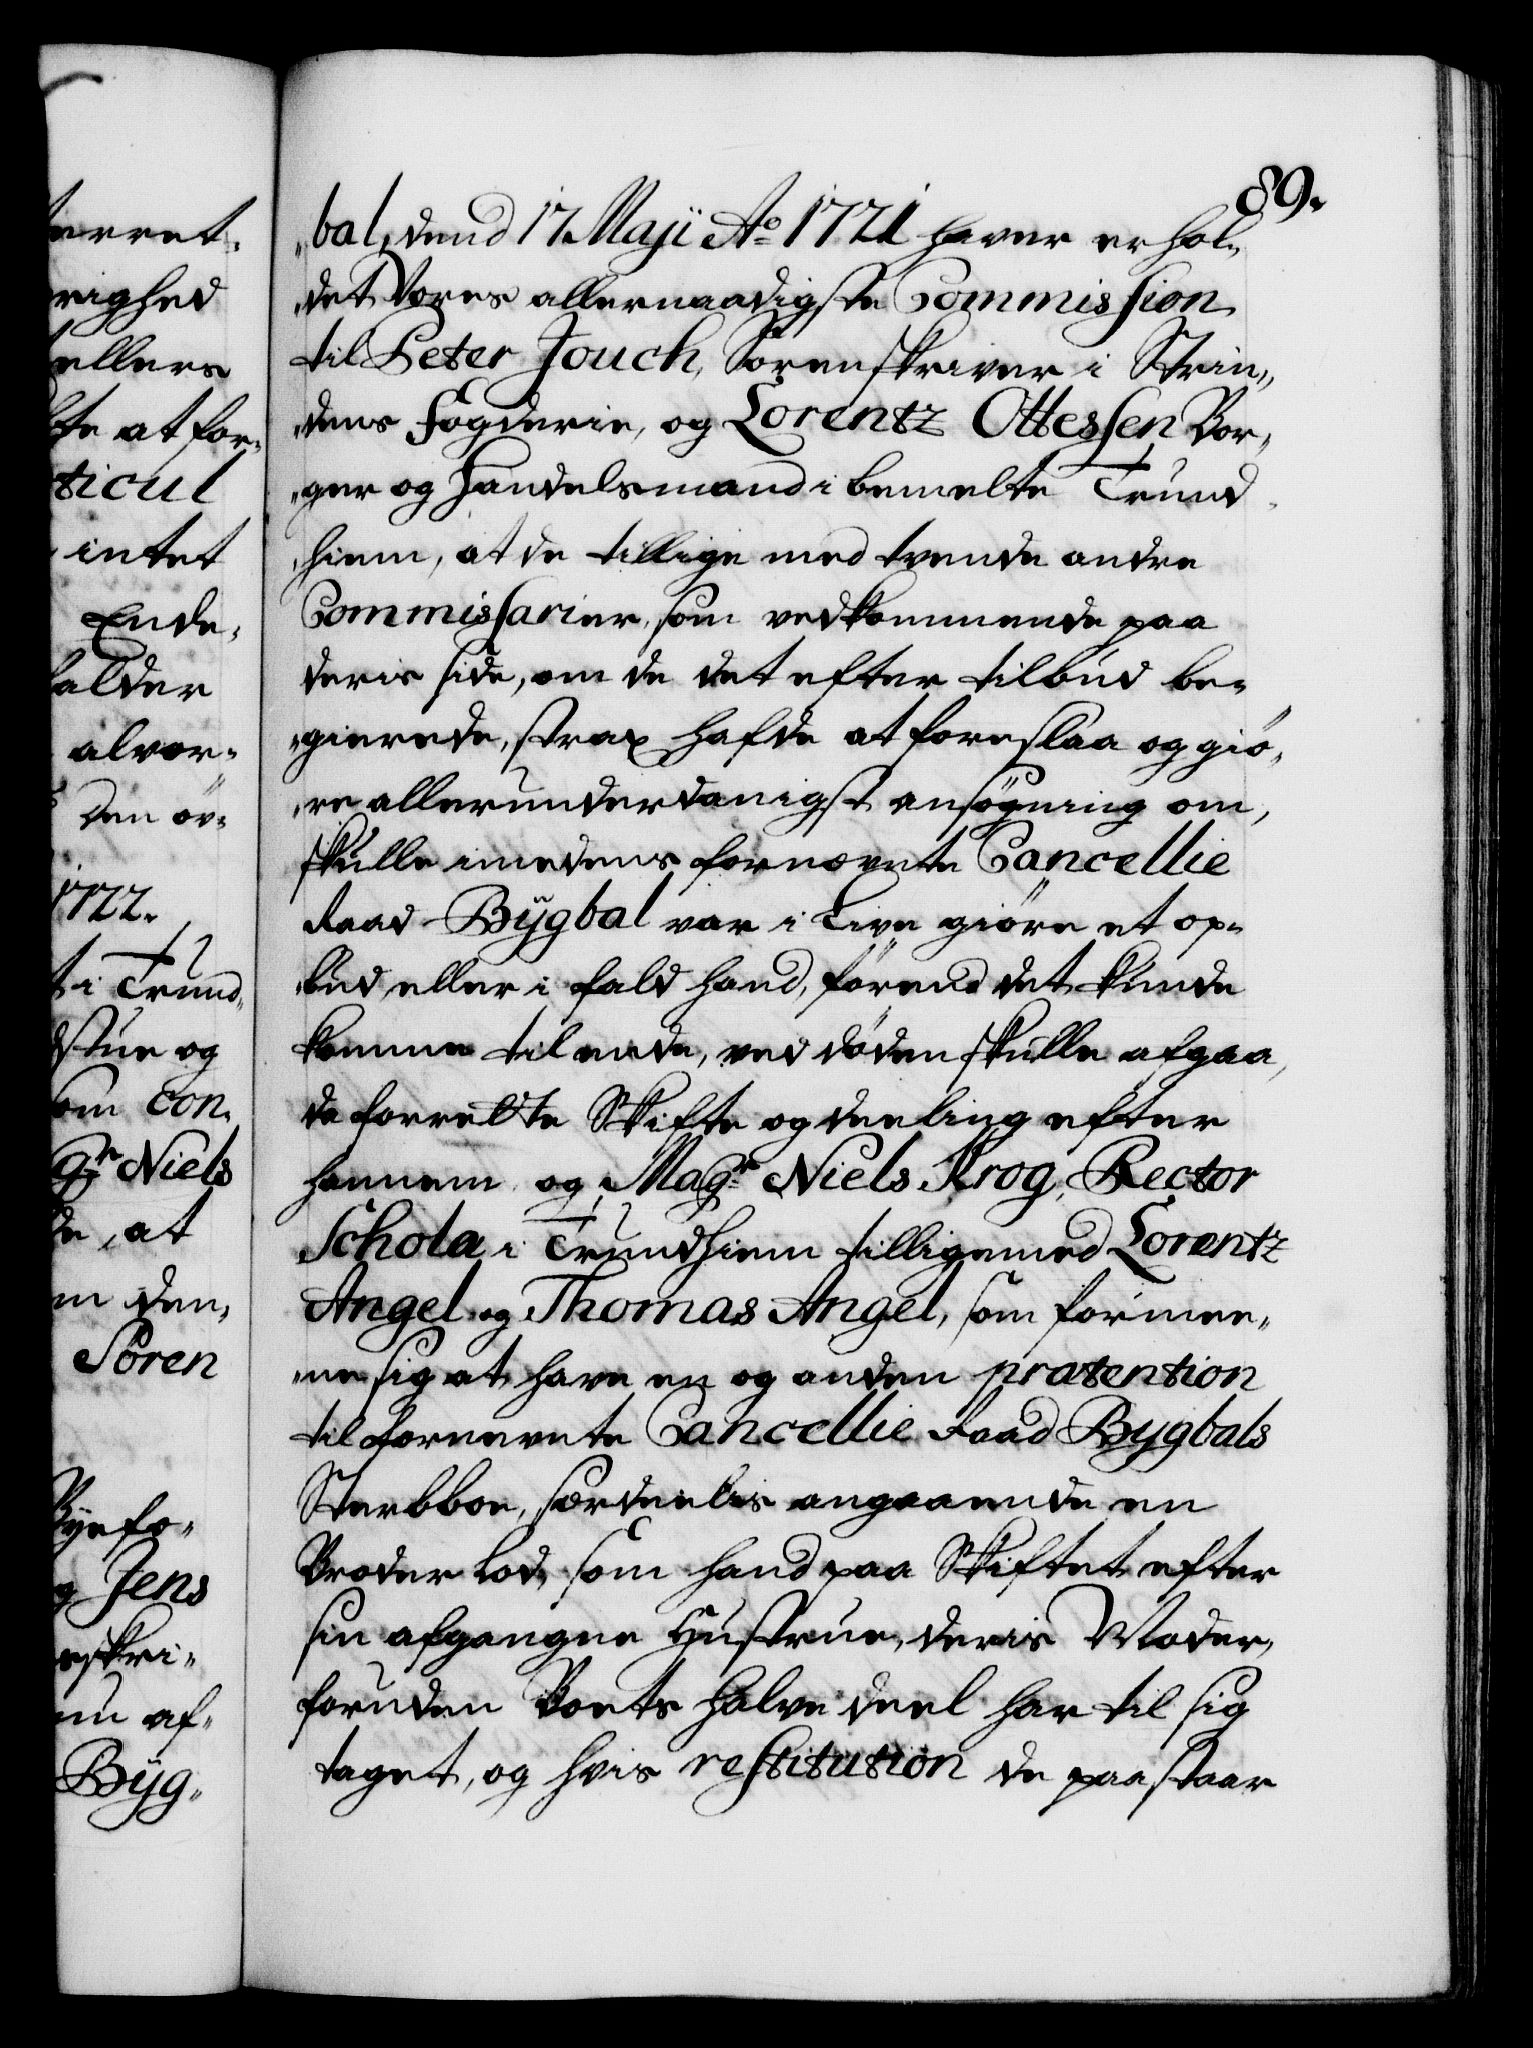 89.
„bal, dend 17 Maji Aº 1721 haver erhol„
„det Vores allernaadigste Commission
til Peter Jouch, Sorenskriver i Strin„
„dens Fogderie, og Lorentz Ottessen Bor„
„ger og Handelsmand i bemelte Trund„
„hiem, at de tillige med tvende andre
Commissarier, som vedkommende paa
deris side, om de det efter tilbud be„
„gierede, strax hafde at foreslaa og giö„
„re allerunderdanigst ansögning om,
skulle imedens fornevnte Cancellie
Raad Bÿgbal var i Live giöre et op„
„bud, eller i fald hand, förend det kunde
komme til ende, ved döden skulle afgaa,
da forrette Skifte og deeling efter
hannem, og Magr Niels Krog, Rector
Schola i Trundhiem tilligemed Lorentz
Angel og Thomas Angel, som formee„
„ne sig at have en og anden prætention
til fornevnte Cancellie Raad Bygbals
Sterbboe, særdeelis angaaende en
Broder Lod, som hand paa Skiftet efter
sin afgangne Hustrue, deris Moder,
foruden Boets halve deel har til sig
taget, og hvis restitution de paastaar
terret„
righed
ellers
at for„
ticul
intet
Ende„
alder
alvor„
den öv„
1722.
i Trund„
stue og
om con„
gr Niels
at
den„
Sören
Byefo„
Jens
skri„
nu af„
Bÿg„